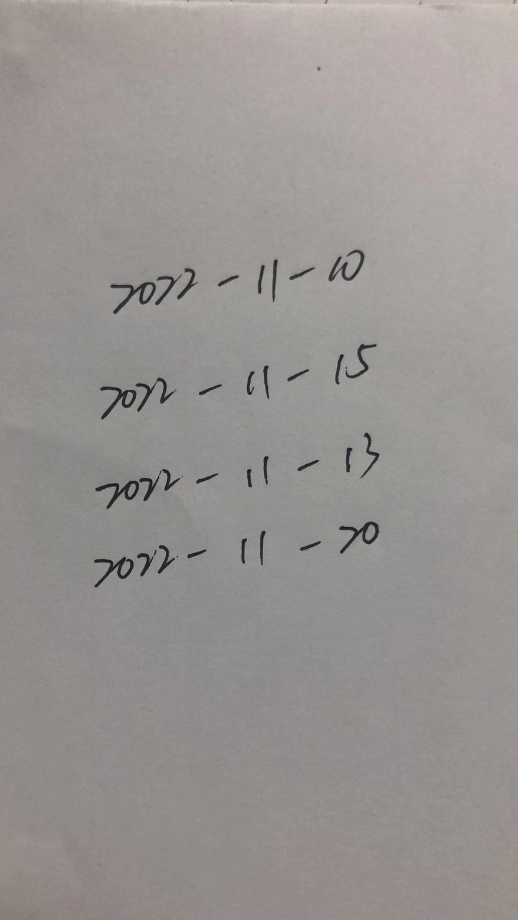 2022-11-10
2022-11-15
2022-11-13
2022-11-20